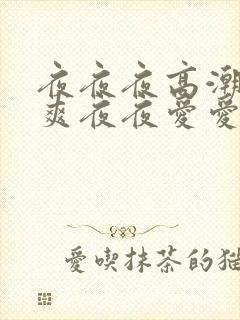 夜夜夜高潮
爽夜夜爱爱
爱喫抹茶的猫